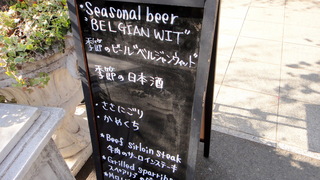 •Seasonal beer
"BELGIAN WIT"
季節のビール"ベルジャンウィット"
季節の日本酒
・ささにごり
・かやくち
*Beef sirloin steak
牛肉のサーロインステーキ
*Grilled sparribs